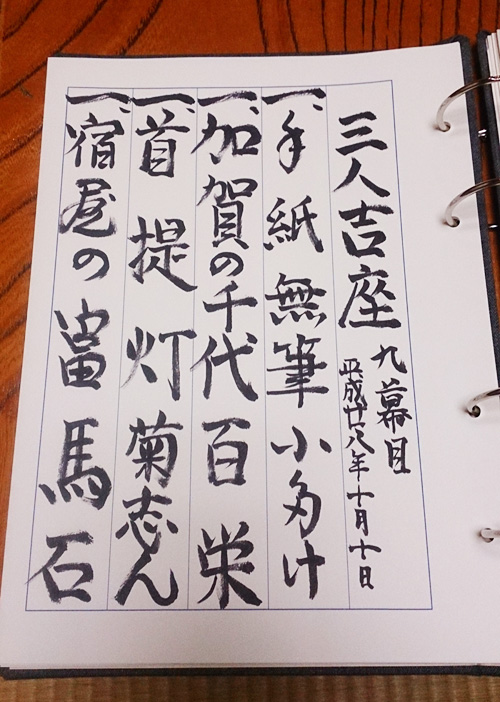 三人吉座 九幕目
平成廿八年十月十日
一、手紙無筆 小多け
一、加賀の千代 百栄
一、首提灯 菊志ん
一、宿屋の富 馬石